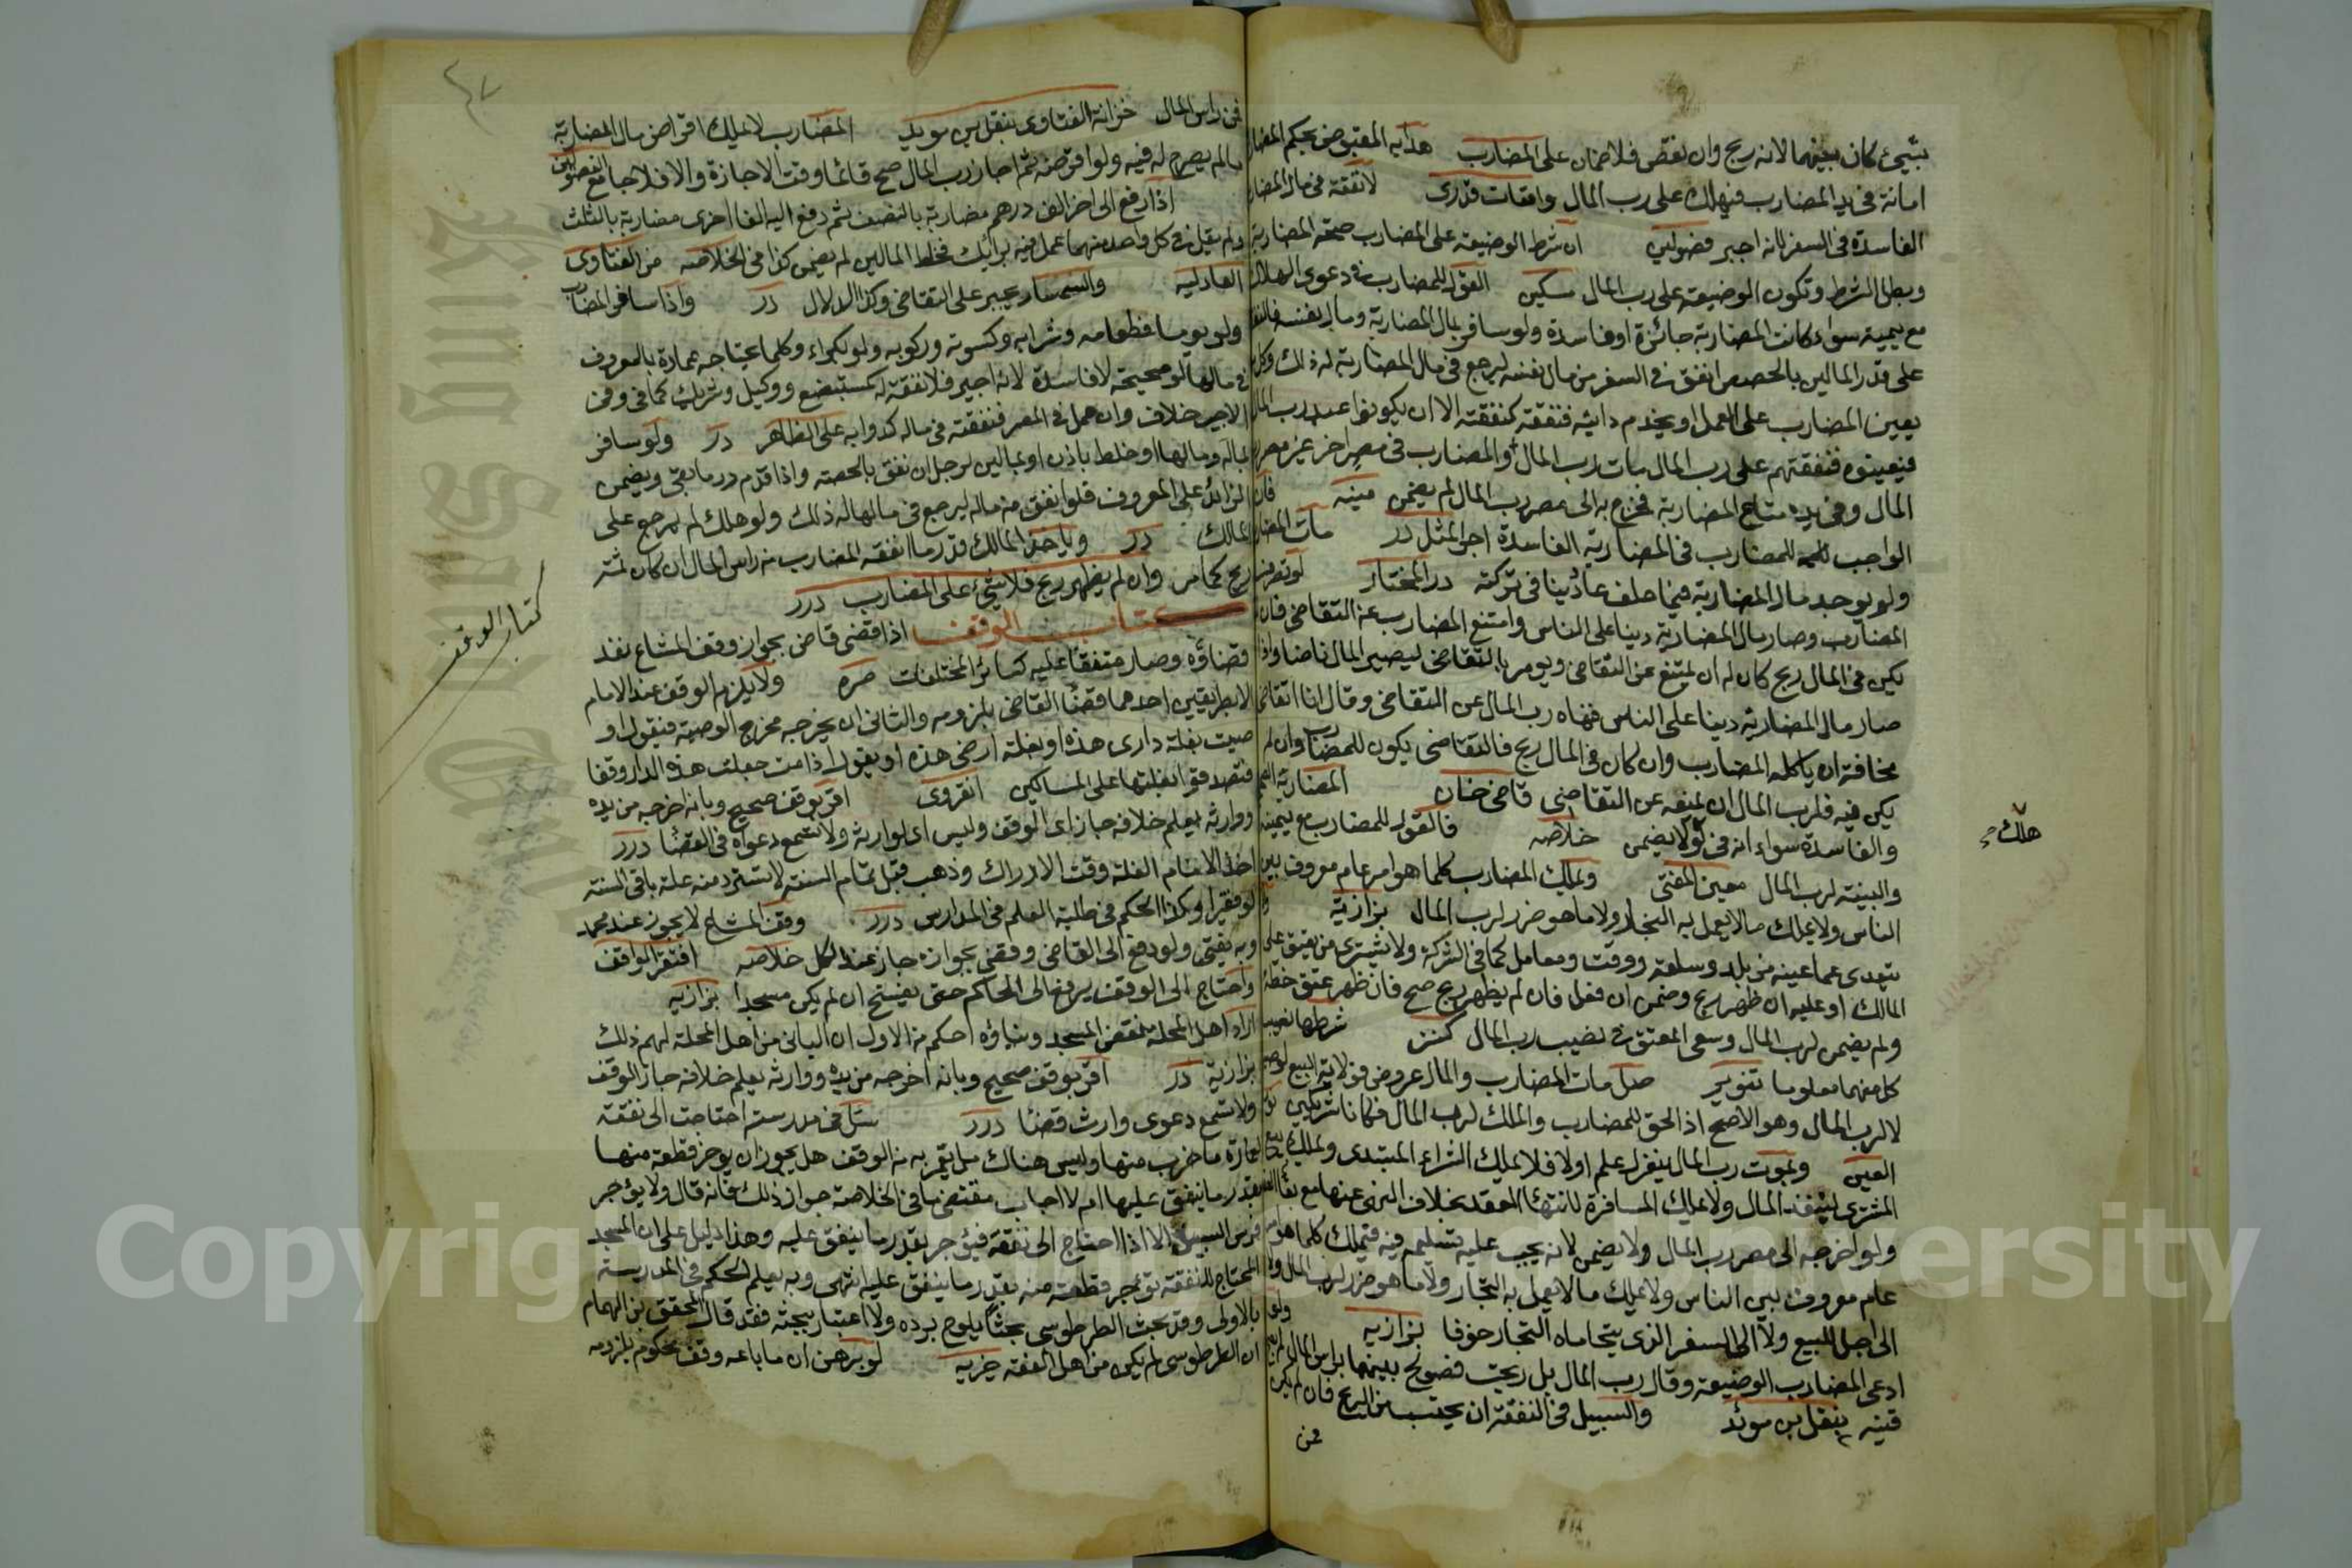 بشيء كان بينهما لانه ربح وان نقص فلا ضمان على المضارب هدايه المقبوض بحكم المضار
امانة في يد المضارب فيهلك على رب المال واقعات قدرى لا نفقة في مال المضار
الفاسدة في السفر لانه اجير فصولين ان شرط الوضيعة على المضارب صحة المضاربة
وبطل الشرط وتكون الوضيعة على رب المال مسكين القول للمضارب في دعوى الهلاك
مع يمينه سواء كانت المضاربة جائزة او فاسدة ولو سافر بمال المضاربة ومال نفسه فالنفقة
على قدر المالين بالحصص انفق في السفر من مال نفسه ليرجع في مال المضاربة له ذلك وكل من
يعين المضارب على العمل او يخدم دابته فنفقته كنفقته الا ان يكونوا عبيد رب المال
فيعينوه فنفقتهم على رب المال مات رب المال والمضارب في مصر اخر غير مصر رب
المال وفي يده متاع المضاربة فخرج به الى مصر رب المال لم يضمن منيه فان
الواجب للمضارب في المضاربة الفاسدة اجر المثل درر مات المضارب
ولم يوجد مال المضاربة فيما خلف عاد دينا في تركته در المختار لو تصرف
المضارب وصار مال المضاربة دينا على الناس وامتنع المضارب عن التقاضي فان لم
يكن في المال ربح كان له ان يمتنع عن التقاضي ويومر بالتقاضي ليصير المال ناضا واذا
صار مال المضاربة دينا على الناس فنهاه رب المال عن التقاضي وقال انا اتقاضى
مخافة ان ياكله المضارب وان كان في المال ربح فالتقاضي يكون للمضارب وان لم
يكن فيه فلرب المال ان يمنعه عن التقاضي قاضي خان المضاربة الصحيحة
والفاسدة سواء انه في لو لا يضمن خلاصه فالقول للمضارب مع يمينه
والبينة لرب المال معين المفتي ويملك المضارب كلما هو امر عام معروف بين
الناس ولا يملك ما لا يعمل به التجار ولا ما هو ضرر لرب المال بزازية ولا
يتعدى عما عينه من بلد وسلعة ووقت ومعامل كما في الشركة ولا يشترى من يعتق على
المالك او عليه ان ظهر ربح وضمن ان فعل فان لم يظهر ربح صح فان ظهر عتق حظه
ولم يضمن لرب المال وسعى المعتق في نصيب رب المال كنز شرطها نصيب
كل منهما معلوما تنوير صل مات المضارب والمال عروض فولاية البيع لوصيه
لا لرب المال وهو الاصح اذ الحق للمضارب والملك لرب المال فكانا شريكين
العين وبموت رب المال ينعزل علم او لا فلا يملك الشراء المبتدى ويملك بيع
المشترى لينفذ المال ولا يملك المسافرة لانتهاء العقد بخلاف النهي عنها مع بقاء العقد
ولو اخرجه الى مصر رب المال ولا يضمن لانه يجب عليه تسليمه فيه فيملك كلما هو امر
عام معروف بين الناس ولا يملك ما لا يعمل به التجار ولا ما هو ضرر لرب المال ولا
الى اجل البيع ولا الى السفر الذي يتحاماه التجار خوفا بزازيه ولو
ادعى المضارب الوضيعة وقال رب المال بل ربحت فصولح بينهما براس المال لم يجز
قنيه بنقل بن مويد والسبيل في النفقة ان يحتسب من الربح فان لم يكن
فمن
هلك صح
٤٧
فمن راس المال خزانة الفتاوى بنقل بن مويد المضارب لا يملك اقراض مال المضاربة
مالم يصرح له فيه ولو اقرضه ثم اجاز رب المال صح قائما وقت الاجازة والا فلا جامع الفصولين
اذا دفع الى اخر الف درهم مضاربة بالنصف ثم دفع اليه الفا اخرى مضاربة بالثلث
ولم يقل في كل واحد منهما عمل فيه برائك فخلط المالين لم يضمن كذا في الخلاصه من الفتاوى
العدليه والسمسار يجبر على التقاضي وكذا الدلال درر واذا سافر المضارب
ولو يوما فطعامه وشرابه وكسوته وركوبه ولو بكراء وكلما يحتاجه عادة بالمعروف
في مالها لو صحيحة لا فاسدة لانه اجير فلا نفقة له كمستبضع ووكيل وشريك كافي وفي
الاخير خلاف وان عمل في المصر فنفقته في ماله كدوابه على الظاهر درر ولو سافر
بماله ومالها او خلط باذن او بمالين لرجلين انفق بالحصة واذا قدم رد ما بقى ويضمن
الزائد على المعروف فلو انفق من ماله ليرجع في مالها له ذلك ولو هلك لم يرجع على
المالك درر وياخذ المالك قدر ما انفقه المضارب من راس المال ان كان ثمة
ربح كما مر وان لم يظهر ربح فلا شيء على المضارب درر
كتاب الوقف اذا قضى قاض بجواز وقف المشاع نفذ
قضاؤه وصار متفقا عليه كسائر المختلفات صره ولا يلزم الوقف عند الامام
الا بطريقين احدهما قضاء القاضي بلزومه والثاني ان يخرجه مخرج الوصية فيقول او
صيت بغلة دارى هذه او بغلة ارضى هذه او يقول اذا مت جعلت هذه الدار وقفا
فتصدقوا بغلتها على المساكين انقروى اقر بوقف صحيح وبانه اخرجه من يده
ووارثه يعلم خلافه جاز اى الوقف وليس اى لوارثه ولا تسمع دعواه في القضاء درر
اخذ الامام الغلة وقت الادراك وذهب قبل تمام السنة لا تسترد منه غلة باقي السنة
لو فقيرا وكذا الحكم في طلبة العلم في المدارس درر وقف المشاع لا يجوز عند محمد
وبه يفتى ولو دفع الى القاضي وقضى بجوازه جاز عند الكل خلاصه افتقر الواقف
واحتاج الى الوقف يرفع الى الحاكم حتى يفسخ ان لم يكن مسجدا بزازيه
اراد اهل المحلة نقض المسجد وبناؤه احكم من الاول ان البانى من اهل المحلة لهم ذلك
بزازية درر اقر بوقف صحيح وبانه اخرجه من يده ووارثه يعلم خلافه جاز الوقف
ولا تسمع دعوى وارثه قضاء درر سئل في مدرسة احتاجت الى نفقة
لعمارة ما خرب منها وليس هناك ما يعمر به من الوقف هل يجوز ان يوجر قطعة منها
بقدر ما ينفق عليها ام لا اجاب مقتضى ما في الخلاصة جواز ذلك فانه قال ولا يؤجر
فرس السبيل الا اذا احتاج الى نفقة فيؤجر بقدر ما ينفق عليه وهذا دليل على ان المسجد
المحتاج للنفقة توجر قطعة منه بقدر ما ينفق عليه انتهى وبه يعلم الحكم في المدرسة
بالاولى وقد بحث الطرطوسي بحثا يلوح برده ولا اعتبار ببحثه فقد قال المحقق بن الهمام
ان الطرطوسي لم يكن من اهل الفقه خيريه لو برهن ان ما باعه وقف محكوم بلزومه
كتاب الوقف
Copyright © King Saud University